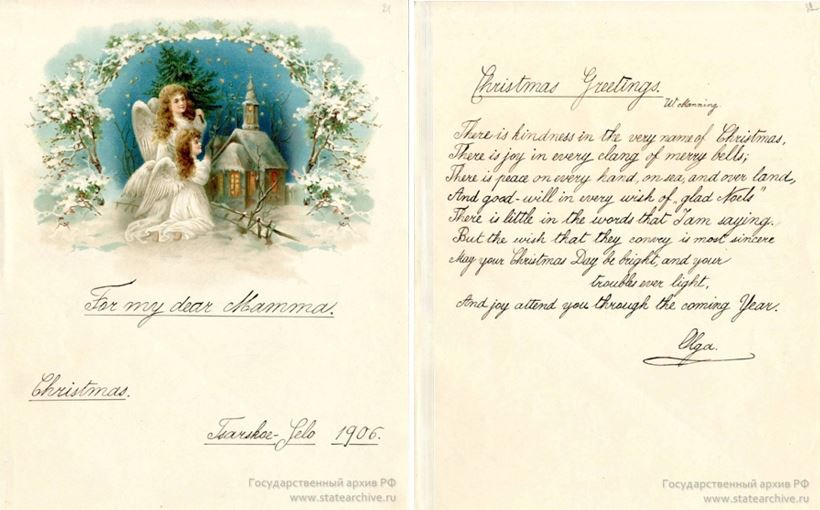 21
For my dear Mamma.
Christmas.
Tsarskoe-Selo 1906.
Государственный архив РФ
www.statearchive.ru
Christmas Greetings.
W. Manning.
There is kindness in the very name of Christmas,
There is joy in every clang of merry bells;
There is peace on every hand, on sea, and over land,
And good-will in every wish of „glad Noels"
There is little in the words that I am saying.
But the wish that they convey is most sincere
May your Christmas Day be bright, and your
troubles ever light,
And joy attend you through the coming Year.
Olga.
Государственный архив РФ
www.statearchive.ru